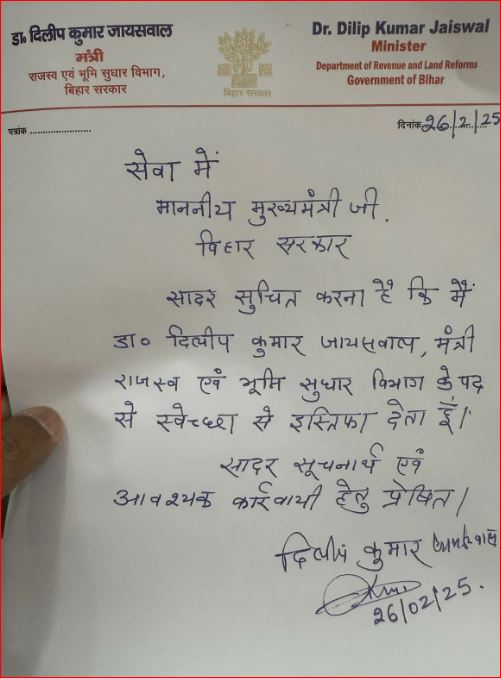 डा० दिलीप कुमार जायसवाल
मंत्री
राजस्व एवं भूमि सुधार विभाग,
बिहार सरकार
बिहार सरकार
Dr. Dilip Kumar Jaiswal
Minister
Department of Revenue and Land Reforms
Government of Bihar
पत्रांक ........................
दिनांक 26/2/25
सेवा में
माननीय मुख्यमंत्री जी.
बिहार सरकार
सादर सुचित करना है कि मैं
डा० दिलीप कुमार जायसवाल, मंत्री
राजस्व एवं भूमि सुधार विभाग के पद
से स्वेच्छा से इस्तिफा देता हूँ।
सादर सूचनार्थ एवं
आवश्यक कार्रवायी हेतु प्रेषित।
दिलीप कुमार
26/02/25.